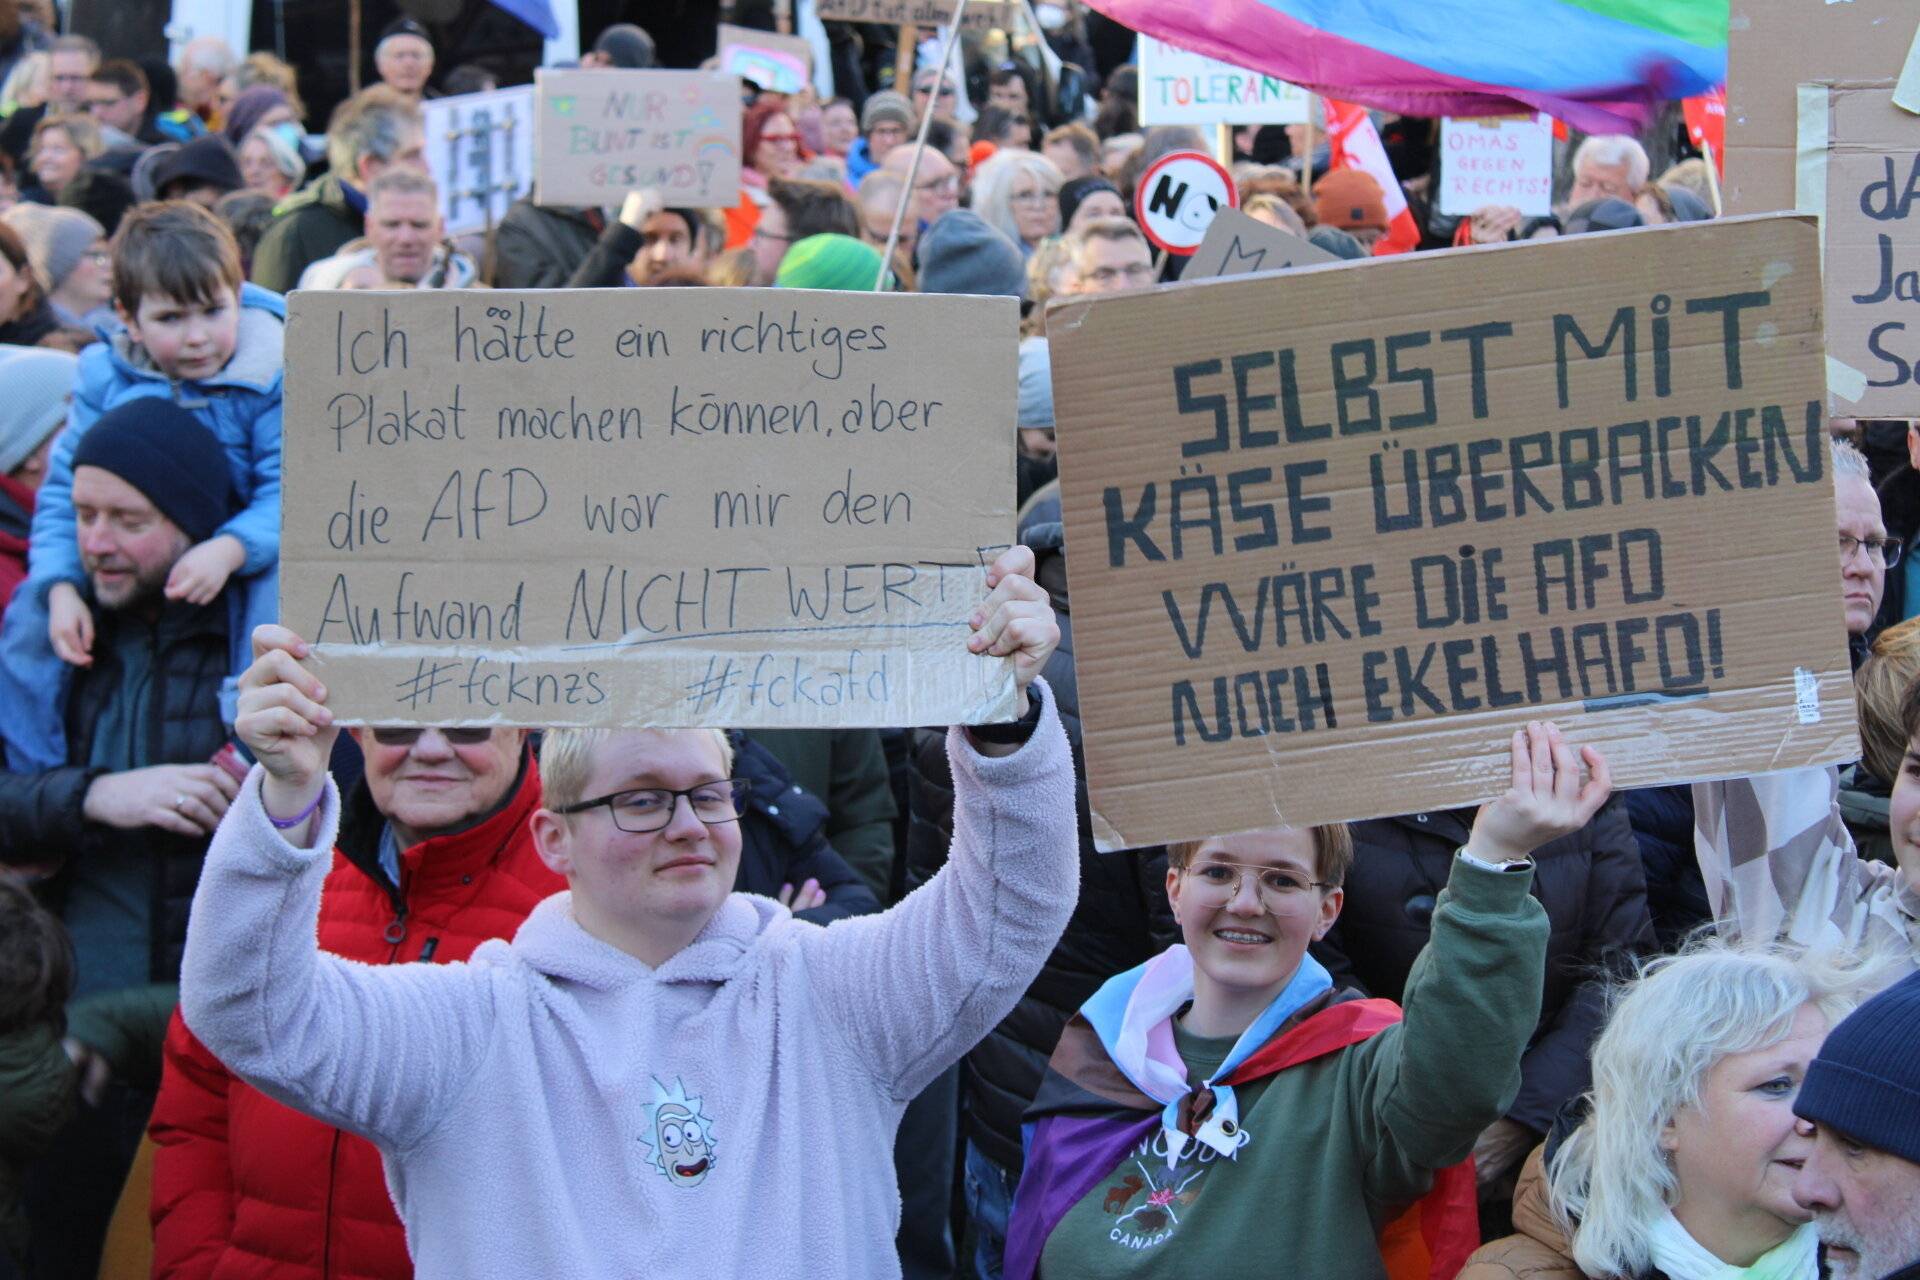 NUR
BUNT IST
GESUND!
TOLERANZ
OMAS
GEGEN
RECHTS!
NO
Ich hätte ein richtiges
Plakat machen können, aber
die AfD war mir den
Aufwand NICHT WERT!
#fcknzs #fckafd
SELBST MiT
KÄSE ÜBERBACKEN
WÄRE DiE AFD
NOCH EKELHAFD!
dA
Ja
CANADA